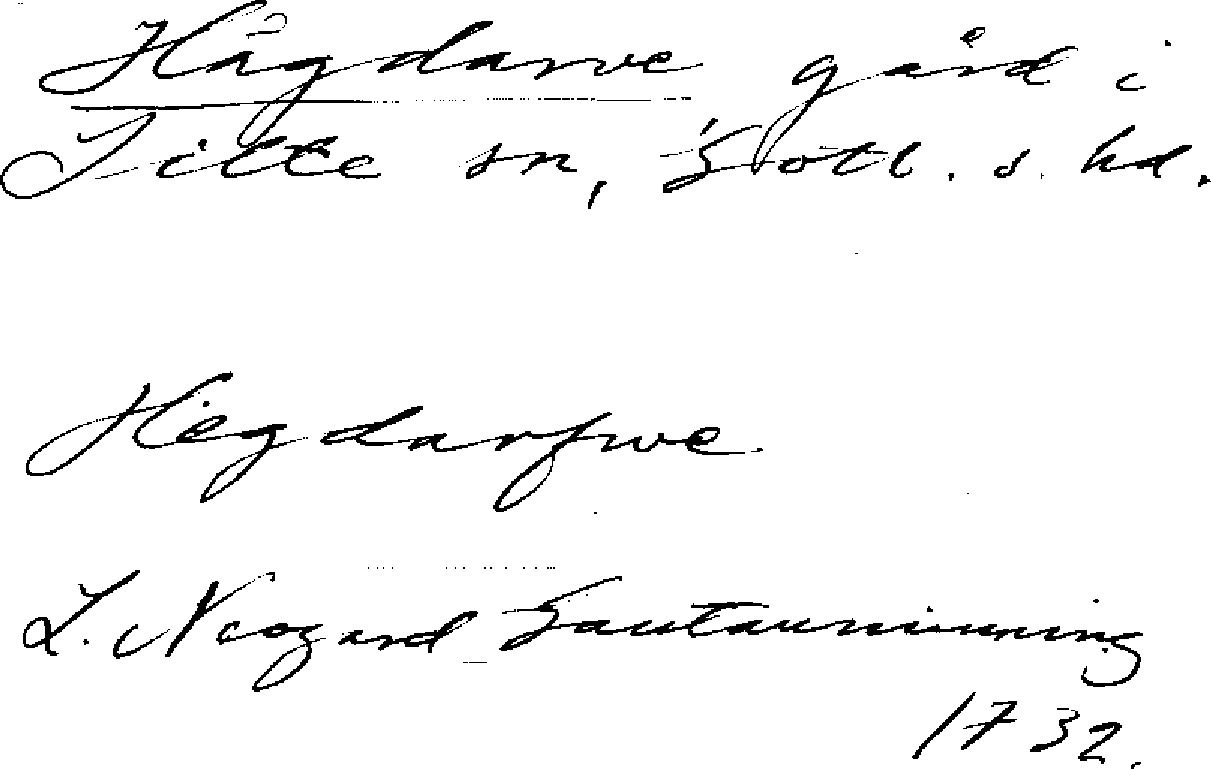 Hågdarve gård i
Fide sn, Gotl. s. hd.
Hegdarfwe
L. Neogard Gautauminning
1732.